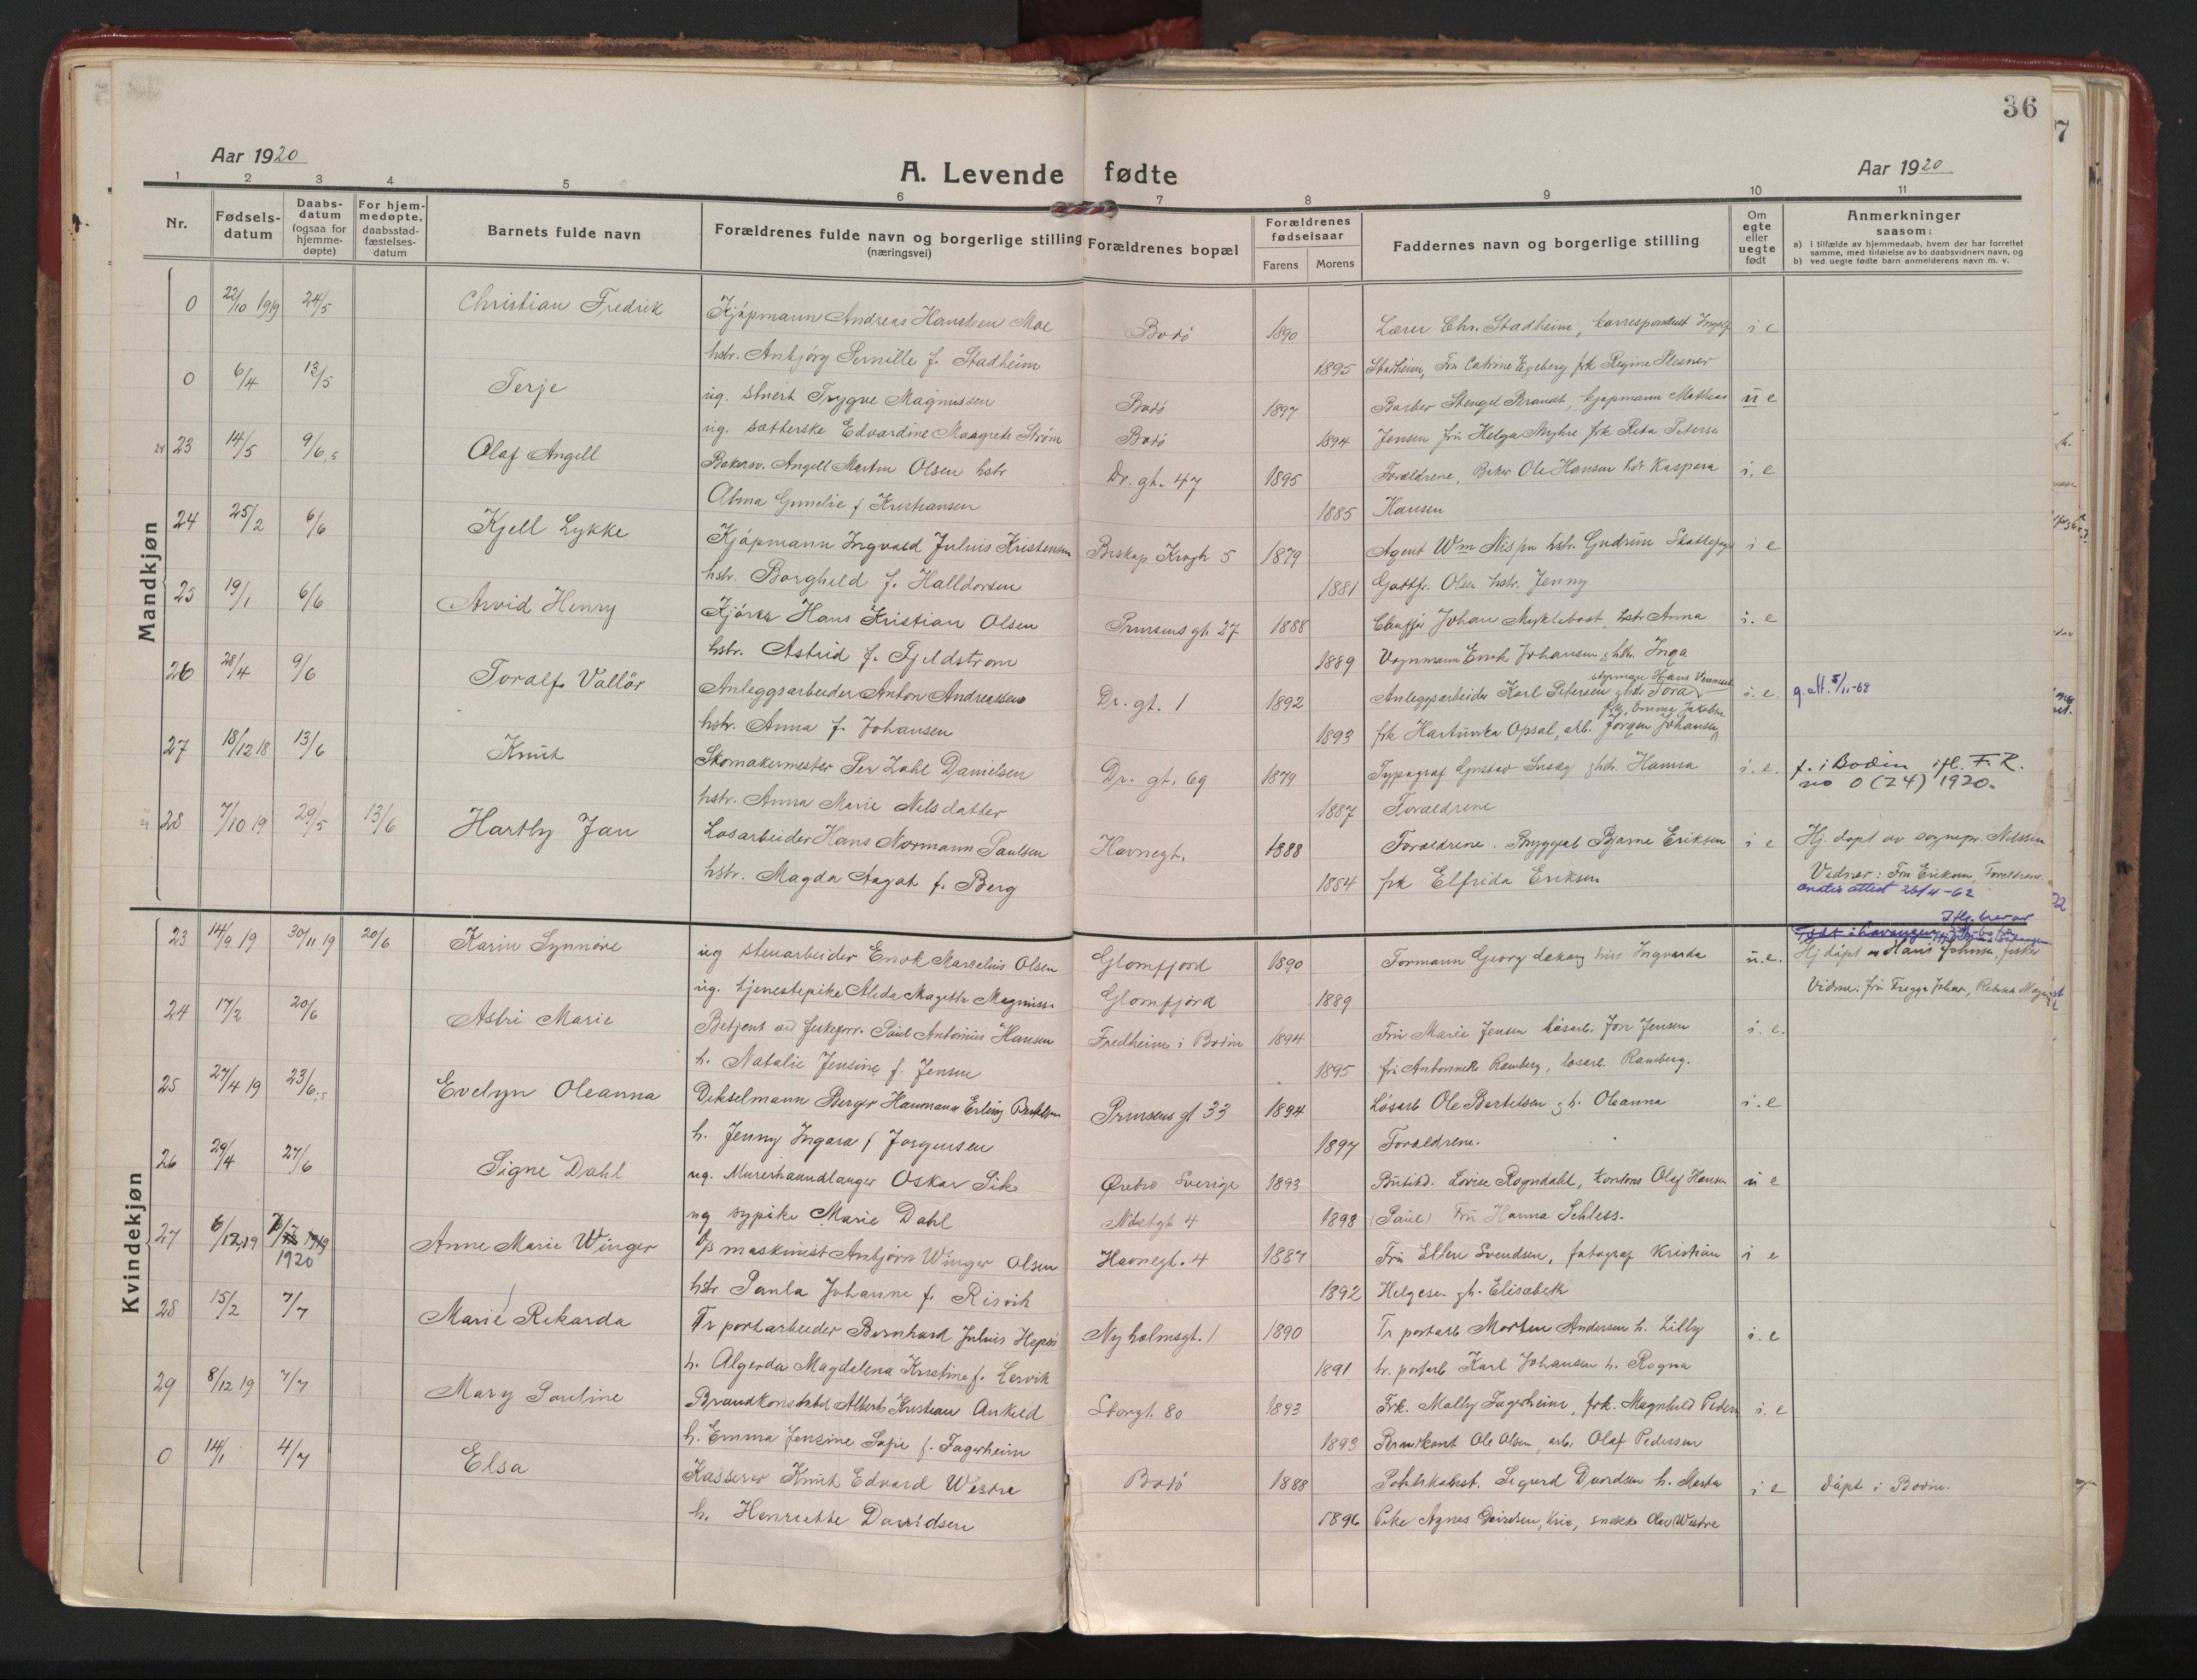 36
Aar 1920
A. Levende fødte
Aar 1920
1 2 3 4 5 6 7 8 9 10 11
Nr.
Fødsels-
datum
Daabs-
datum
(ogsaa for
hjemme-
døpte)
For hjem-
medøpte,
daabsstad-
fæstelses-
datum
Barnets fulde navn
Forældrenes fulde navn og borgerlige stilling
(næringsvei)
Forældrenes bopæl
Forældrenes
fødselsaar
Farens Morens
Faddernes navn og borgerlige stilling
Om
egte
eller
uegte
født
Anmerkninger
saasom:
a) i tilfælde av hjemmedaab, hvem der har forrettet
samme, med tilføielse av to daabsvidners navn, og
b) ved uegte fødte barn anmelderens navn m. v.
Mandkjøn
0 22/10 1919 24/5 Christian Fredrik Kjøpmann Andreas Moe Bodø 1890 Lærer Chr. Stadheim, i e
hstr. Anbjørg Pernille f. Stadheim 1895 Stadheim, Fru Catrine Egeberg frk Regine
0 6/4 13/5 Terje ug. Trygve Magnussen Bodø 1897 Barber Stengel Brandt, kjøpmann Mathias u e
ug. Edvardine Margrete Strøm Bodø 1894 Jensen fru Helga Myhre frk
23 14/5 9/6 Olaf Angell Bakersv. Angell Martin Olsen hstr Dr. gt. 47 1895 Forældrene, Baker Ole Hansen hstr Kaspara i. e
Alma f Kristiansen 1885 Hansen
24 25/2 6/6 Kjell Lykke Kjøpmann Ingvald Julius Kristensen Biskop Krogh 5 1879 Agent Wm hstr. Gudrun i e
hstr. Borghild f. Halldorsen 1881 Gottfr. Olsen hstr. Jenny
25 19/1 6/6 Arvid Henry Kjører Hans Kristian Olsen Prinsens gt. 27 1888 Johan Myklebost, hstr Anna i. e
hstr. Astrid f. Fjeldstrøm 1889 Vognmann Johansen g hstr. Inga
26 28/4 9/6 Toralf Vallør Anleggsarbeider Anton Andreassen Dr. gt. 1 1892 Anleggsarbeider Karl Petersen g hstr Tora styrman Hans i. e. g. att. 5/11-62
hstr. Anna f. Johansen 1893 frk Opsal, arb. Jørgen Johansen frk. Emma Jakobsen
27 18/12 18 13/6 Knut Skomakermester Per Zahl Danielsen Dr. gt. 69 1879 Typograf Gustav g hstr. Hanna i. e. f. i Bodin ifl. F. R.
no 0 (24) 1920.
hstr. Anna Marie Nilsdatter 1887 Forældrene
28 7/10 19 29/5 13/6 Hartly Jan Løsarbeider Hans Normann Paulsen Havnegt. 1888 Forældrene. Bryggeab Bjarne Eriksen i e Hj. døpt av sognepr. Nilssen
hstr. Magda Aagot f. Berg 1884 frk Elfrida Eriksen Vidner: Fru Eriksen, Foreldrene.
attest 26/4-62
Kvindekjøn
23 14/9 19 30/11 19 20/6 Karin Synnøve ug stenarbeider Enok Marcelius Olsen Glomfjord 1890 Formann Georg hstr Ingvarda u. e. Hj døpt av Hans Johnsen, fisker
ug. tjenestepike Alida Magetta Magnussen Glomfjord 1889 Vidne: fru Johnsen, Rebekka
24 17/2 20/6 Astri Marie Betjent ved fiskeforr. Paul Antonius Hansen Fredheim i Bodin 1894 Fru Marie Jensen løsarb. Jon Jensen i. e.
h. Natalie Jensine f. Jensen 1895 fru Antonnette Ramberg, løsarb. Ramberg.
25 27/4 19 23/6 Evelyn Oleanna Dikselmann Birger Haumann Erling Bertelsen Prinsens gt 33 1894 Løsarb Ole Bertelsen g h. Oleanna i. e
h. Jenny Ingara f Jørgensen 1897 Forældrene.
26 29/4 27/6 Signe Dahl ug. Murerhaandlanger Oskar Sik Ørebro Sverige 1893 Lovise Rogndahl, Kontors Olaf Hansen u e
ug sypike Marie Dahl gt 4 1898 (Paul) Fru Hanna Schless.
27 6/12 19 1920 Anne Marie Winger maskinist Anbjørn Winger Olsen Havnegt. 4 1887 Fru Ellen Svendsen, fotograf Kristian i e
hstr Paula Johanne f. Risvik 1892 Helgesen g h. Elisabeth
28 15/2 7/7 Marie Rikarda Tr portarbeider Bernhard Julius Nyholmsgt. 1 1890 Tr portarb Morten Andersen h. Lilly i. e
h. Algerda Magdelena Kristine f. Lervik 1891 tr. portarb Karl Johansen h. Ragna
29 8/12 19 7/7 Mary Pauline Brandkonstabel Albert Kristian Storgt. 80 1893 Frk. Mally Fagerheim, frk. Magnhild i. e
h. Emma Jensine Sofie f. Fagerheim 1893 Brandkonst Ole Olsen, arb. Olaf Pedersen
0 14/1 4/7 Elsa Kasserer Knut Edvard Westre Bodø 1888 Sigurd Davidsen h. Marta i e døpt i Bodin.
h. Henriette Davidsen 1896 Pike Agnes Davidsen, Olav Westre